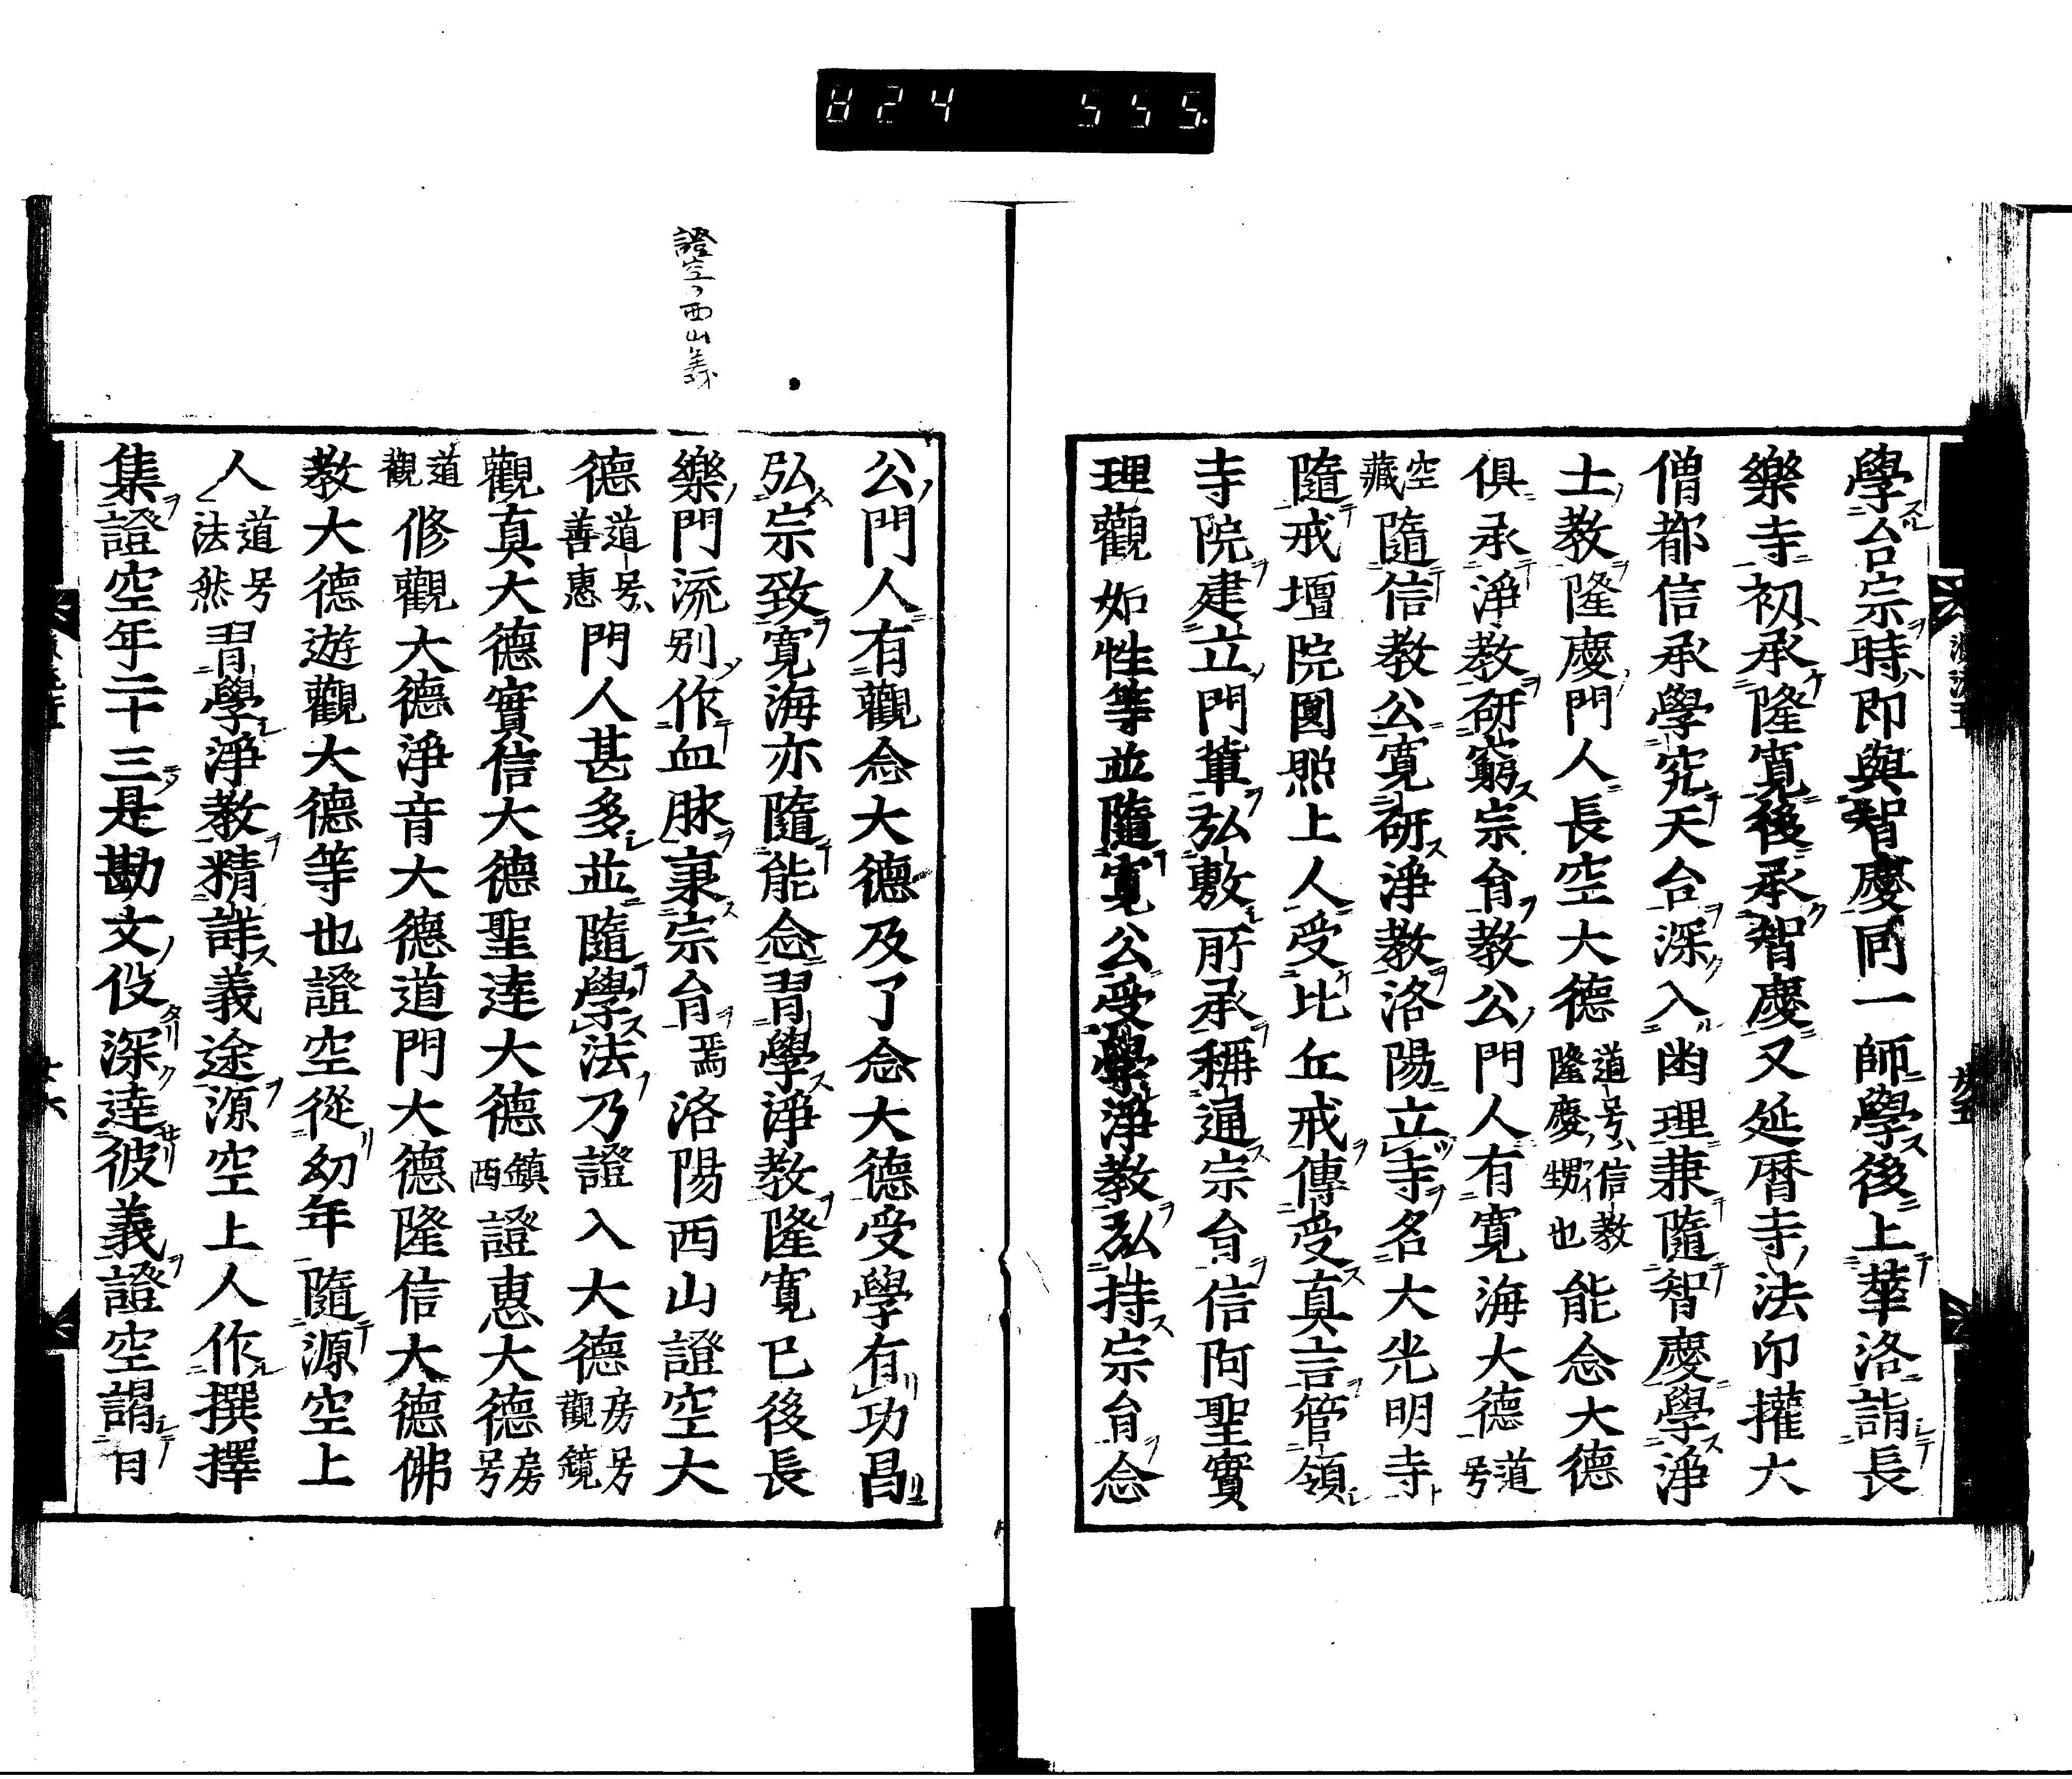 824 555
學台宗時即與智慶同一師學後上華洛詣長
樂寺初承隆寛後承智慶又延暦寺法印權大
僧都信承學究天台深入幽理兼隨智慶學淨
土教隆慶門人長空大德道号信教隆慶甥也能念大德
俱承淨教研窮宗旨教公門人有寛海大德道号
空藏隨信教公寛研淨教洛陽立寺名大光明寺
隨戒壇院圓照上人受比丘戒傳受真言管領
寺院建立門葷弘敷所承稱通宗旨信阿聖實
理觀如性等並隨寛公受學淨教弘持宗旨念
公門人有觀念大德及了念大德受學有功昌
弘宗致寛海亦隨能念習學淨教隆寛已後長
樂門流別作血脉稟宗旨焉洛陽西山證空大
德道号善惠門人甚多並隨學法乃證入大德房号觀鏡
觀真大德實信大德聖達大德鎮西證惠大德房号
道觀修觀大德淨音大德道門大德隆信大德佛
教大德遊觀大德等也證空從幼年隨源空上
人道号法然習學淨教精詳義途源空上人作撰擇
集證空年二十三是勘文役深達彼義證空謂曰
證空ノ西山義